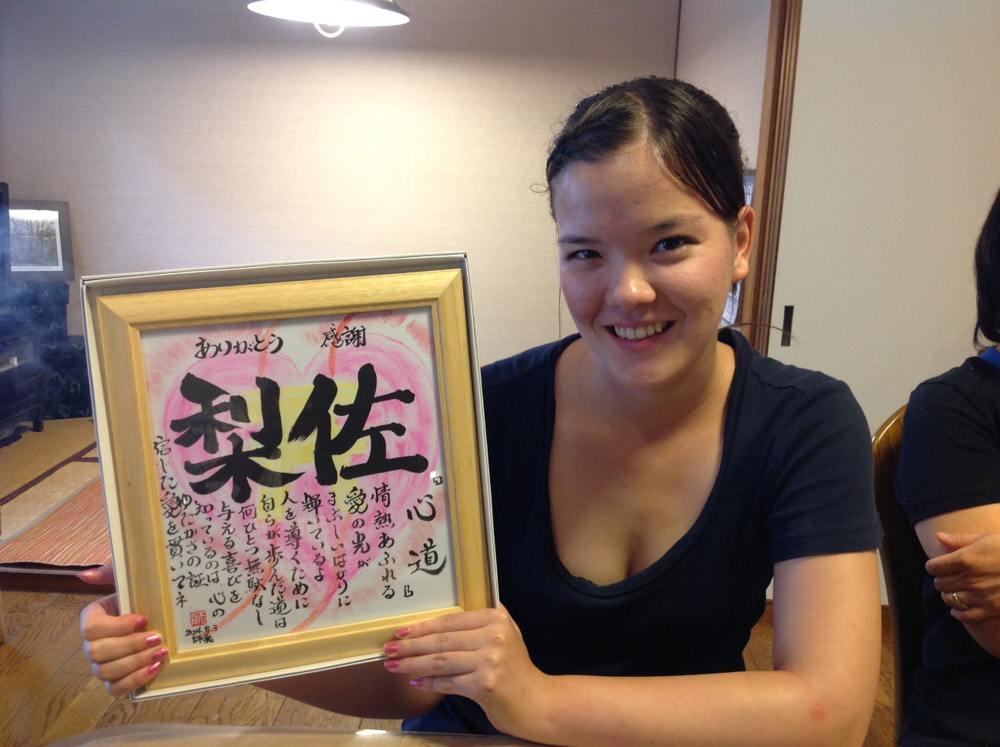 ありがとう 感謝
梨佐
『心道』
情熱あふれる
愛の光が
まぶしいばかりに
輝いているよ
人を導くために
自らが歩んだ道は
何ひとつ無駄なし
与える喜びを
知っているのは心の
ゆたかさの証
信じた愛を貫いてネ
2014.8.3